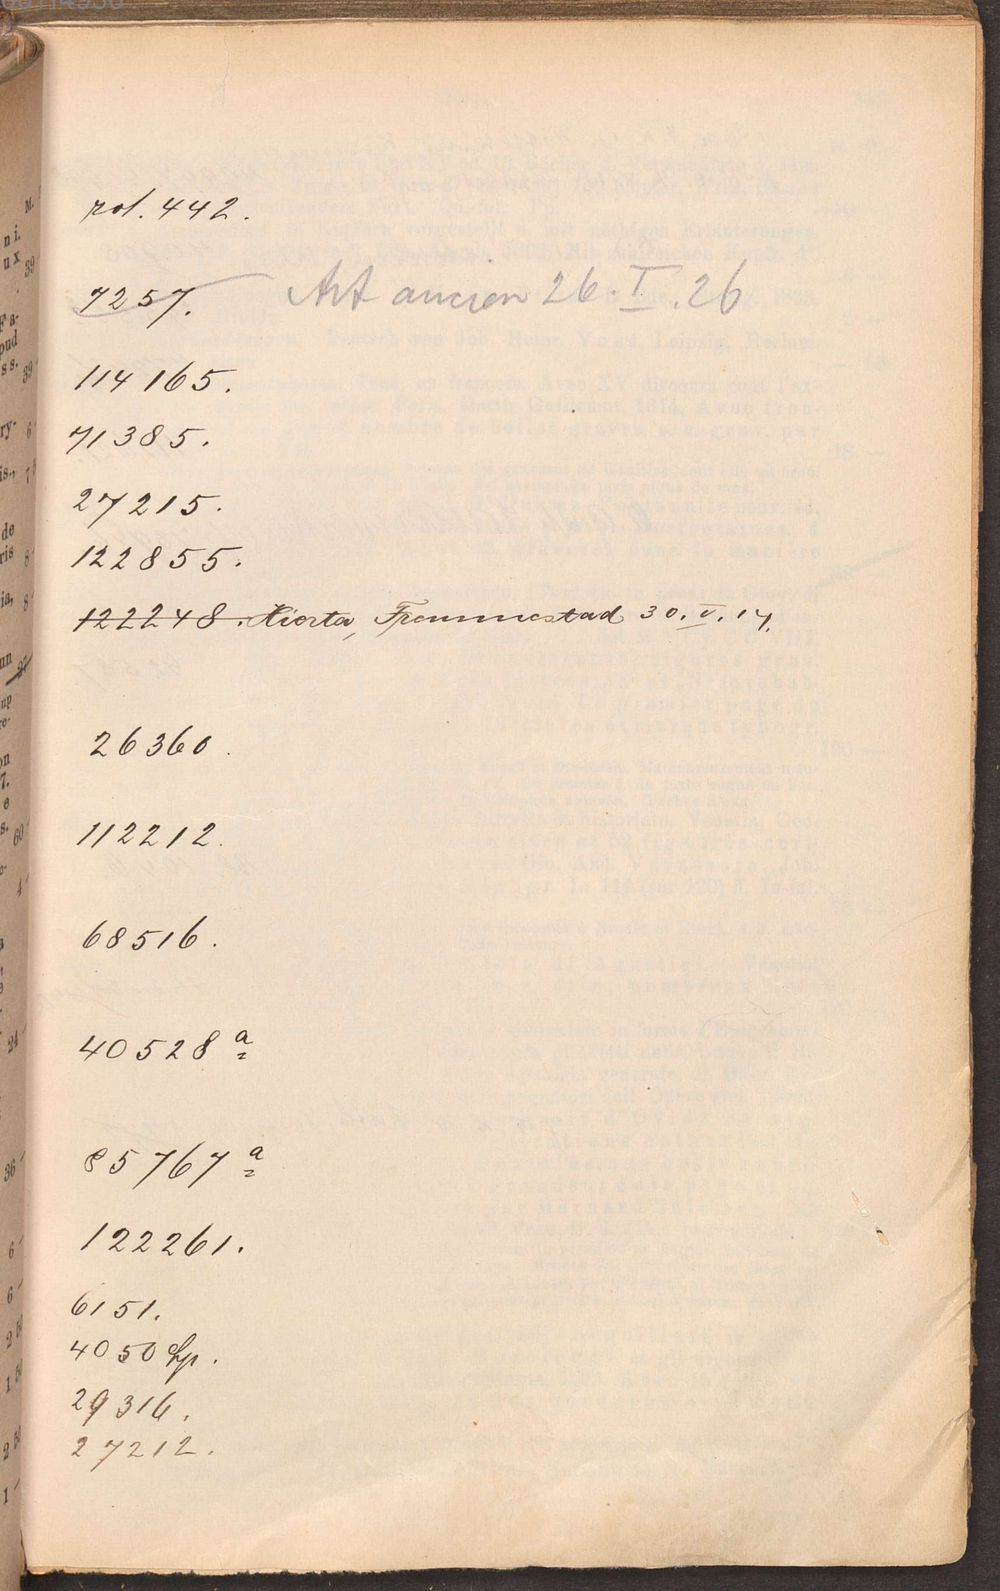 rol. 442.
7257. Art ancien 26.I.26
114165.
71385.
27215.
122855.
122248. Hierta, Fremmestad 30.V.14.
26360.
112212.
68516.
40528 a
85767 a
122261.
6151.
4050
29316.
27212.